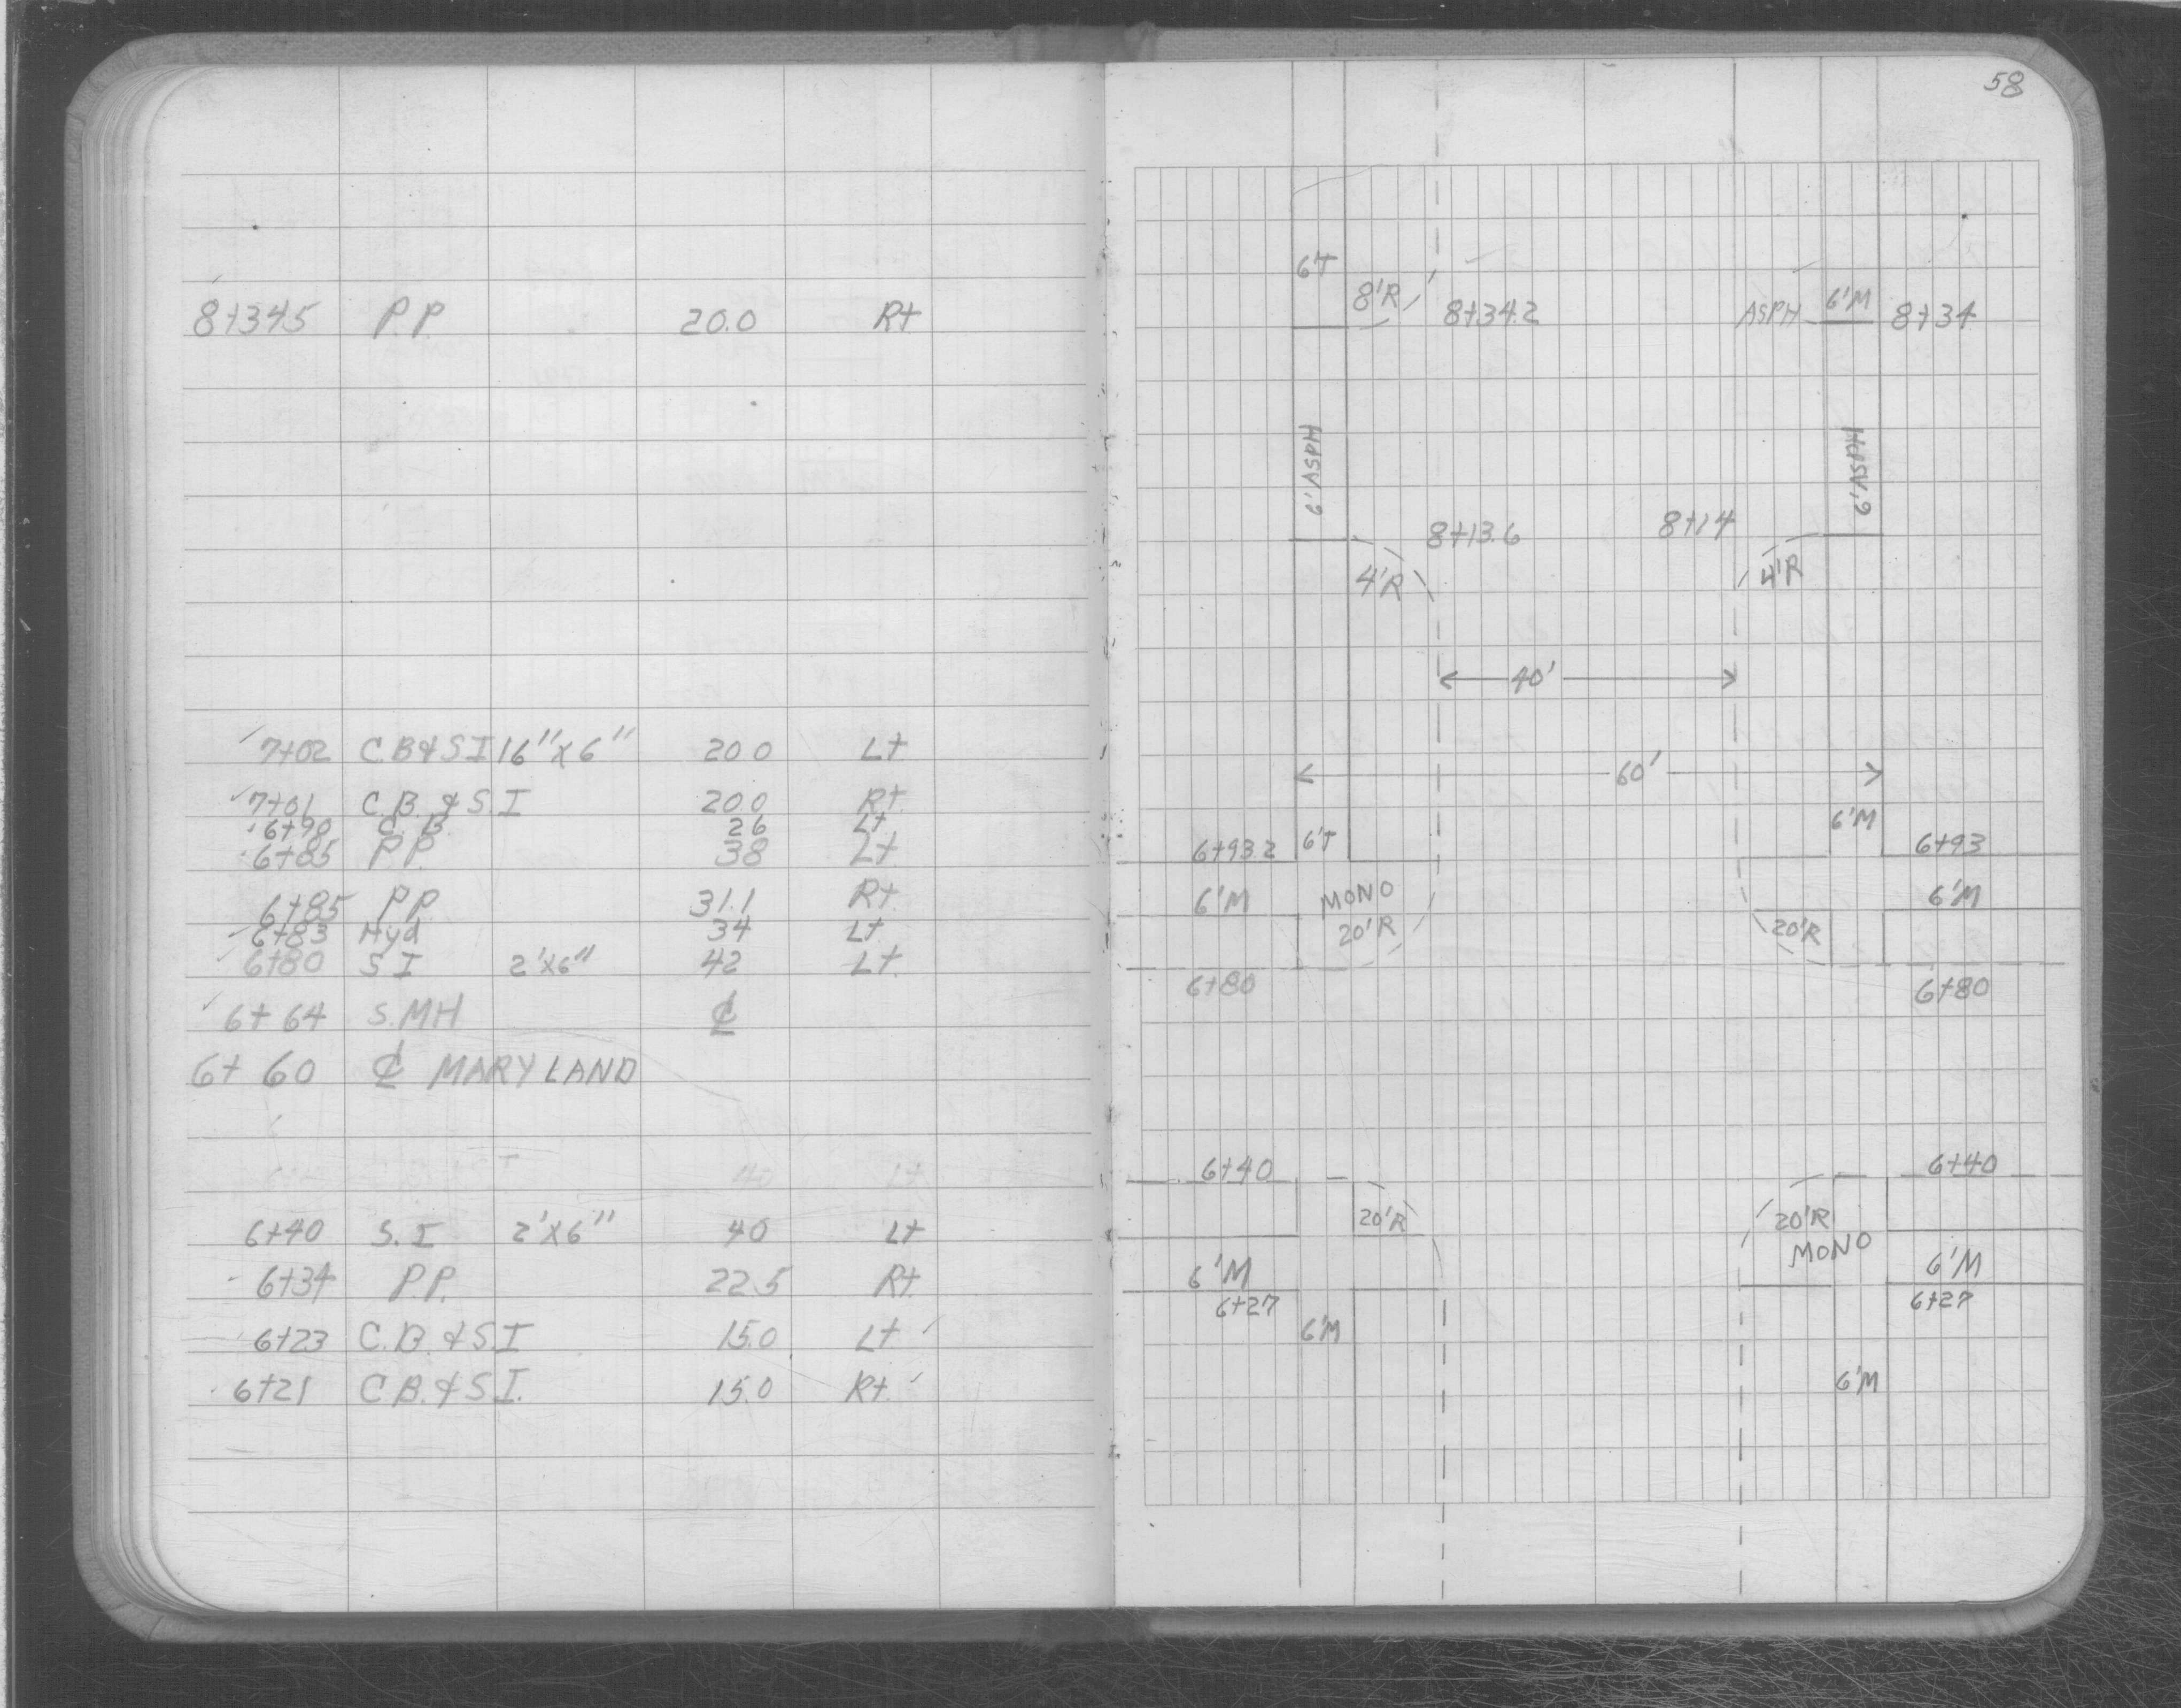 58
8+34.5 P.P. 20.0 Rt
7+02 C.B & S.I 16"x6" 20.0 Lt
7+01 C.B. & S.I 20.0 Rt.
6+98 C.B. 26 Lt
6+85 P.P. 38 Lt
6+85 P.P. 31.1 Rt.
6+83 Hyd 34 Lt
6+80 S.I 2'x6" 42 Lt.
6+64 S.MH ℄
6+60 ℄ MARYLAND
40 Lt
6+40 S.I 2'x6" 40 Lt
6+34 P.P. 22.5 Rt.
6+23 C.B. & S.I 15.0 Lt
6+21 C.B. & S.I. 15.0 Rt.
6'T
8'R 8+34.2 ASPH 6'M 8+34
6' ASPH 6' ASPH
8+13.6 8+14
4'R 4'R
40'
60'
6'M
6+93.2 6'T 6+93
6'M MONO 6'M
20'R 20'R
6+80 6+80
6+40 6+40
20'R 20'R
MONO
6'M 6'M
6+27 6+27
6'M
6'M